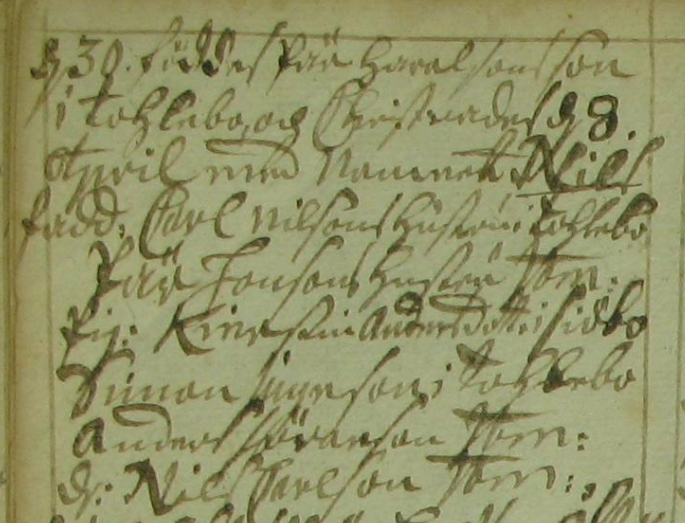 d. 30. föddes Pär Haralsons son
i Tohlebo, och Christnades d. 8.
April med Namnet Nils
fadd. Carl Nilsons hustru i Tohlebo
Pär Jonsons hustru ibm:
Pig: Kirestin Andersdotter i
Simon i Tohlebo
Anders Sörenson ibm:
dr: Nils Carlson ibm: